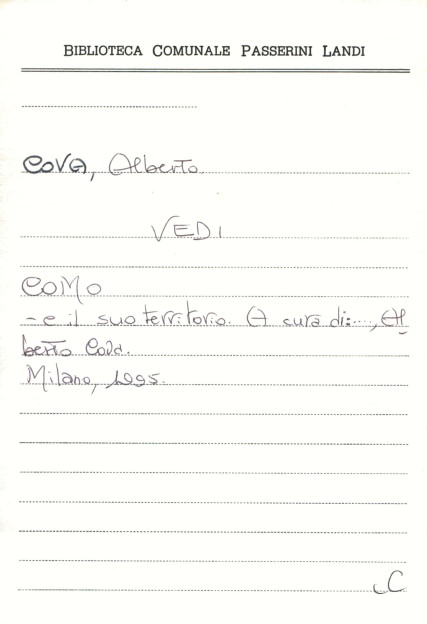 BIBLIOTECA COMUNALE PASSERINI LANDI
COVA, Alberto
VEDI
COMO
- e il suo territorio. A cura di:..., Al
berto Cova.
Milano, 1995.
C